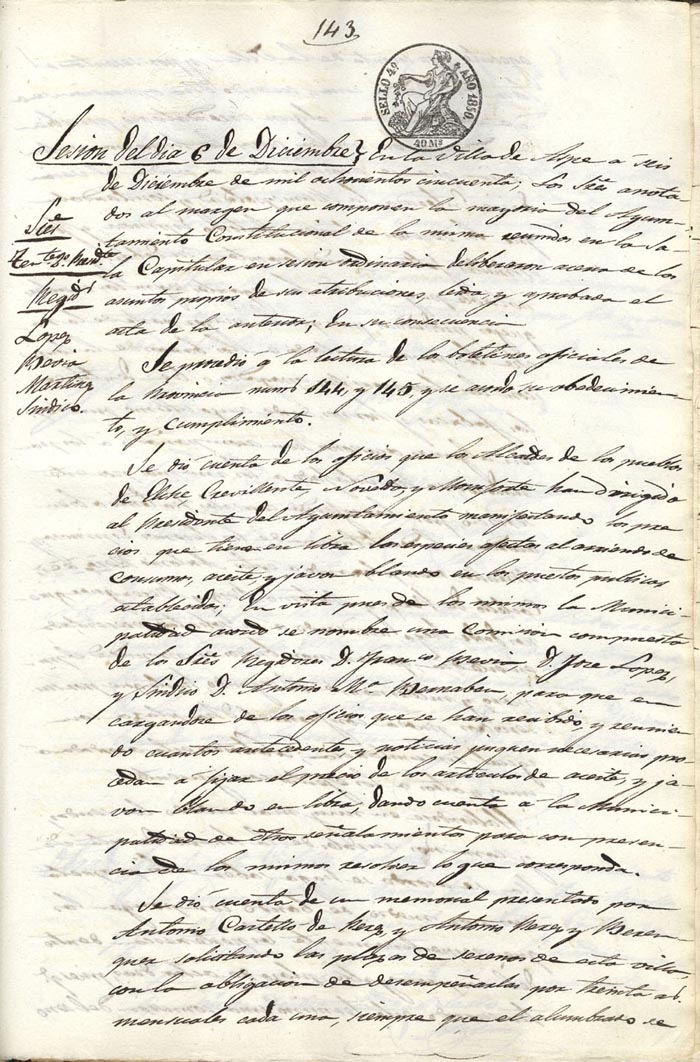 143
SELLO 4º AÑO 1850.
40 Ms
Sesion del dia 6 de Diciembre } En la Villa de Aspe a seis
de Diciembre de mil ochocientos cincuenta; Los Sres anota
dos al margen que componen la mayoria del Ayun
tamiento Constitucional de la misma reunidos en la Sa
la Capitular en sesion ordinaria deliberaron acerca de los
asuntos propios de sus atribuciones, leida, y aprobada el
acta de la anterior; En su consecuencia
Sres
Regidrs
Lopez
Bevia
Martinez
Sindico.
Se procedió a la lectura de los boletines oficiales de
la Provincia numos 144, y 145, y se acordo su obedecimien-
to, y cumplimiento.
Se dió cuenta de los oficios que los Alcaldes de los pueblos
de Elche, Crevillente, Novelda, y Monforte han dirigido
al Presidente del Ayuntamiento manifestando los pre
cios que tienen en libra las especies afectas al arriendo de
consumos, aceite, y javon blando en los puestos publicos
establecidos; En vista pues de los mismos la Munici
palidad acordo se nombre una Comision compuesta
de los Sres Regidores D. Franco Bevia, D. Jose Lopez,
y Sindico D. Antonio Ma Bernabeu, para que en
cargandose de los oficios que se han recibido, y reunien
do cuantos antecedentes, y noticias juzguen necesarias pro
cedan a fijar el precio de los articulos de aceite, y ja
von blando en libra, dando cuenta á la Munici
palidad de dhos señalamientos para con presen-
cia de los mismos resolver lo que corresponda.
Se dió cuenta de un memorial presentado por
Antonio Castello de Perez, y Antonio Perez y Beren
guer solicitando las plazas de serenos de esta villa,
con la obligacion de desempeñarlas por treinta rs.
mensuales cada una, siempre que el alumbrado se